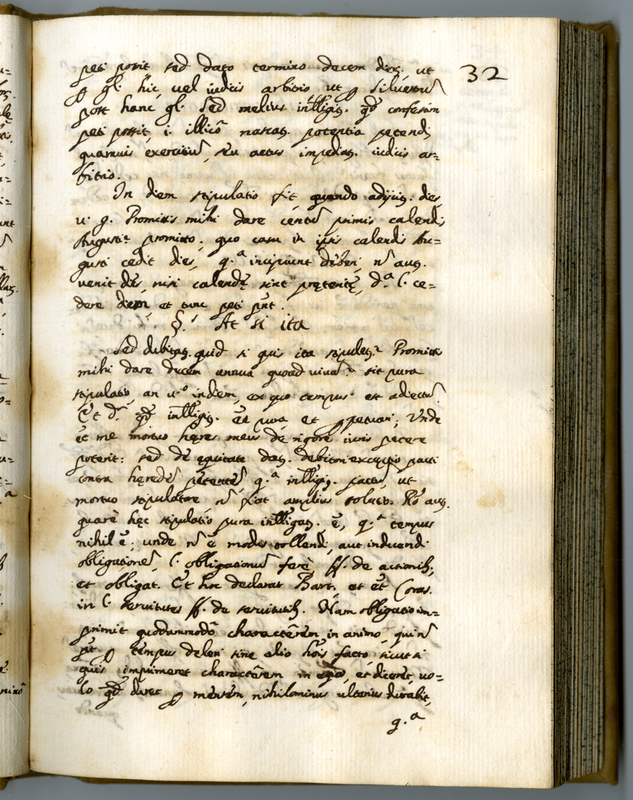 32
peti possit sed dato termino decem dieř, ut
gl. hic vel iudicis arbitrio ut Silvestrũ
post hanc gl. Sed melius intlligit. qd confestim
peti possit i. illico nascat. potentia petendi
quamvis exercitiũ, seu actus impediat. iudicis ar=
bitrio.
In diem stipulatio fit quando adijcit. dies
v. g. Promittis mihi dare centũ primis calendis
Augusti promitto. quo casu in ipsis calendis Au=
gusti cedit dies, q.ᵃ incipiunt deberi nõ aut.
venit dies nisi calendę sint pręteritę, d.ᵃ l. ce=
dere diem et tunc peti pñt.
§. At si ita
Sed dubitat. quid si quis ita stipulet.ʳ Promittis
mihi dare decem annua quoad vivã? sit pura
stipulatio, an v.º in diem, ex quo tempus est adiectũ.
Et dř qd intlligit. eẽ pura et ppetua, Unde
et me mortuo hęres meus de rigore iuris petere
poterit: sed de equitate dat. debitori exceptio pacti
contra hęredẽ petentẽ q.ᵃ intlligit. pactũ, ut
mortuo stipulatore nõ fiat amplius solutio. Rõ aut.
quare hęc stipulatio pura intlligat. ẽ, q.ᵃ tempus
nihil ẽ, unde nõ ẽ modus tollendi, aut inducendi
obligationẽ, l. obligationũ ferè ff. de actionib,
et obligat. Et hoc declarat Bart. et ẽt Coras.
in l. servitutes ff. de servitutib. Nam obligatio im=
primit quodammodo characterem in animo, qui nõ
põt p tempus deleri sine alio hõis facto sicut si
quis imprimeret characterem in et diceret, vo=
lo qd duret p mensem, nihilominus ulterius durabit,
q.ᵃ